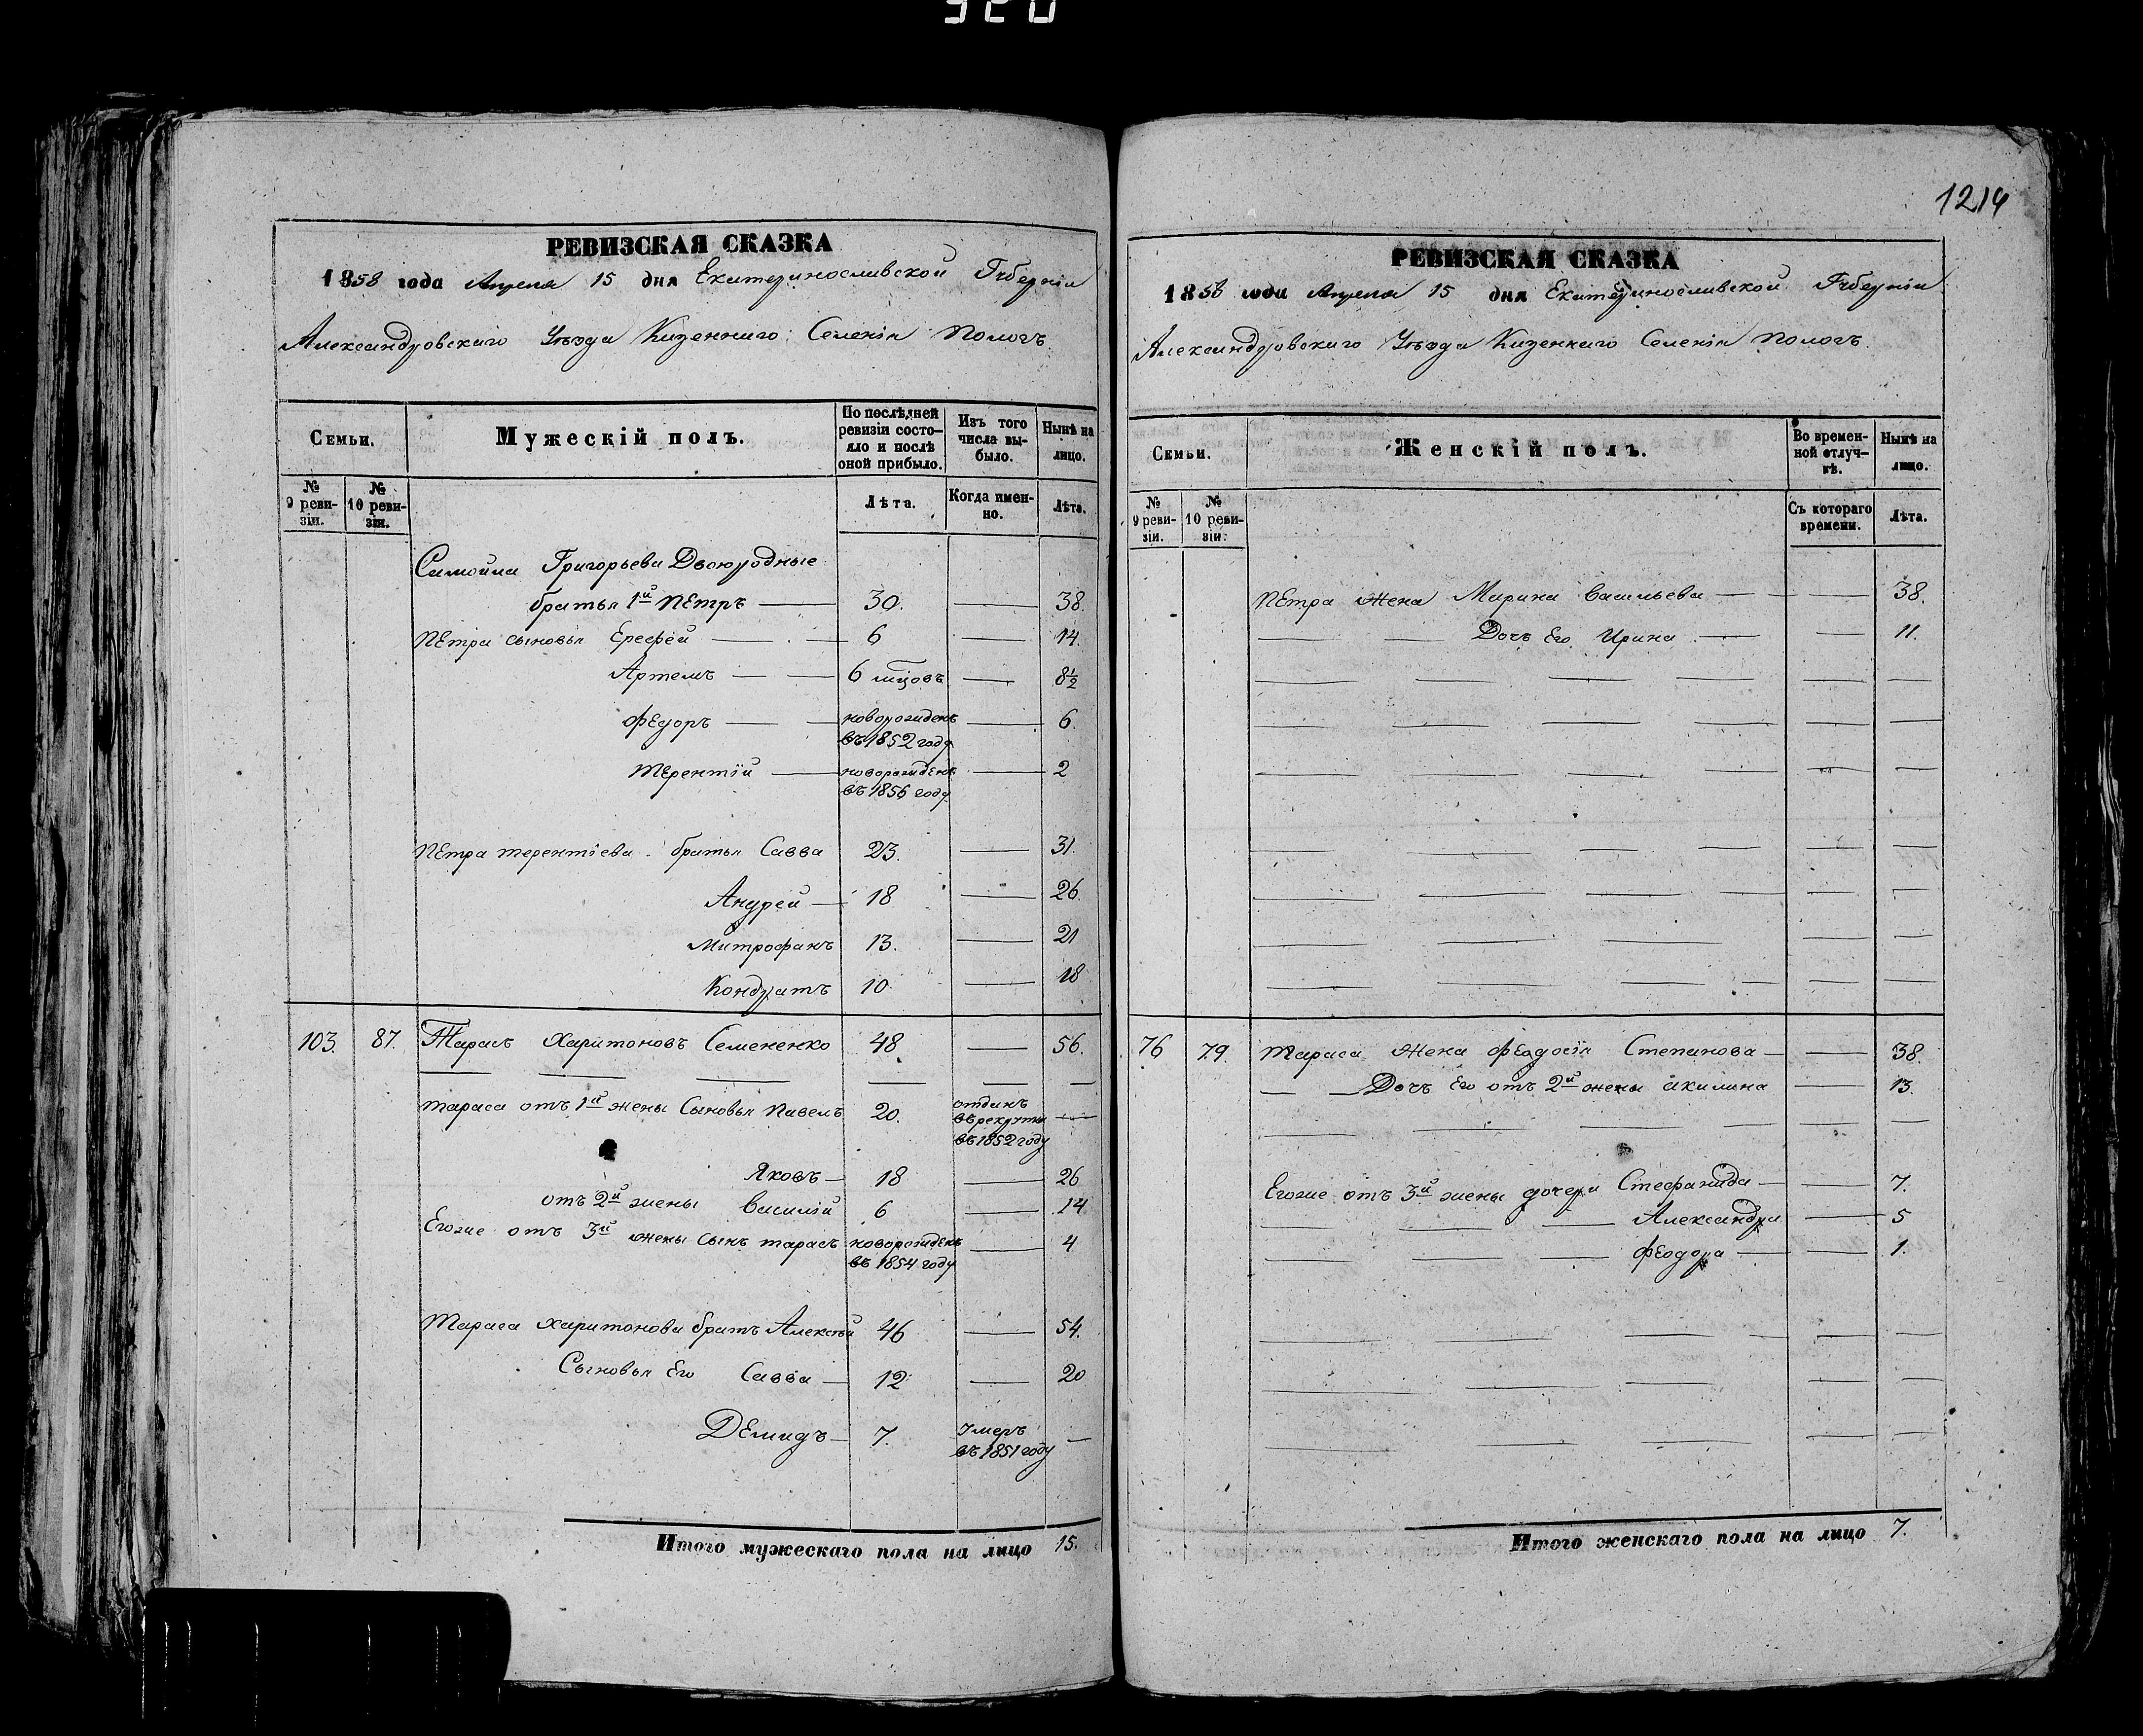 1214
РЕВИЗСКАЯ СКАЗКА
1858 года Апреля 15 дня Екатеринославской Губерніи
Александровскаго Уѣзда Казеннаго Селенія Пологъ.
Семьи.
Мужескій полъ.
По послѣдней ревизіи состо-
яло и послѣ оной прибыло.
Изъ того числа вы-
было.
Нынѣ на лицо.
№ 9 реви-
зіи.
№ 10 реви-
зіи.
Лѣта.
Когда имен-
но.
Лѣта.
Самойла Григорьева Двоюродные
братья 1й Петръ 30. 38.
Петра сыновья Ерефей 6 14.
Артемъ 6 мцовъ 8½
Федоръ новорожденъ 6.
въ 1852 году
Терентій новорожденъ 2
въ 1856 году
Петра Терентіева братья Савва 23. 31.
Андрей 18 26.
Митрофанъ 13. 21
Кондратъ 10. 18
103. 87. Тарасъ Харитоновъ Семененко 48. 56.
Тараса отъ 1й жены Сыновья Павелъ 20. отданъ
въ рекруты
въ 1852 году
Яковъ 18 26
отъ 2й жены Василій 6 14
Егоже отъ 3й жены Сынъ Тарасъ новорожденъ 4
въ 1854 году
Тараса Харитонова братъ Алексѣй 46 54.
Сыновья Его Савва 12. 20
Демидъ 7. Умеръ
въ 1851 году
Итого мужескаго пола на лицо 15.
РЕВИЗСКАЯ СКАЗКА
1858 года Апреля 15 дня Екатеринославской Губерніи
Александровскаго Уѣзда Казеннаго Селенія Пологъ.
Семьи.
Женскій полъ.
Во времен-
ной отлуч-
кѣ.
Нынѣ на лицо.
№ 9 реви-
зіи.
№ 10 реви-
зіи.
Съ котораго времени.
Лѣта.
Петра жена Марина Васильева 38.
Дочъ Его Ирина 11.
76 79. Тараса Жена Феодосія Степанова 38.
Дочъ Его отъ 2й жены Акилина 13.
Егоже отъ 3й жены дочери Стефанида 7.
Александра 5
Феодора 1.
Итого женскаго пола на лицо 7.